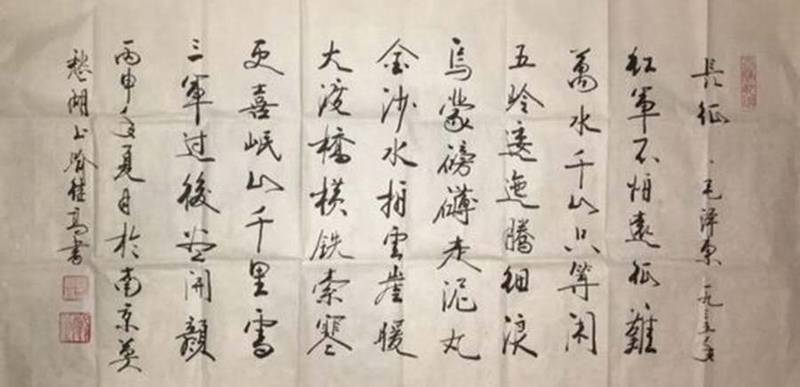 長征·毛澤東一九三五年
紅軍不怕遠征難
萬水千山只等闲
五岭逶迤騰细浪
烏蒙磅礴走泥丸
金沙水拍雲崖暖
大渡橋横铁索寒
更喜岷山千里雪
三軍过後尽開顏
丙申年夏月於南京莫
愁湖上高書